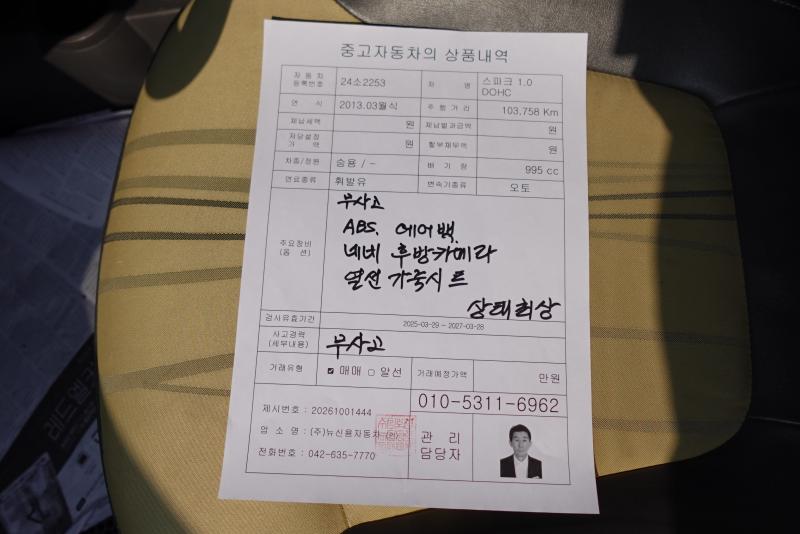 중고자동차의 상품내역
자동차등록번호 24소2253 차 명 스파크 1.0 DOHC
연 식 2013.03월식 주행거리 103,758 Km
체납세액 원 체납벌과금액 원
저당설정가액 원 할부채무액 원
차종/정원 승용 / - 배기량 995 cc
연료종류 휘발유 변속기종류 오토
주요장비(옵 션)
무사고
ABS. 에어백.
네비 후방카메라
열선 가죽시트
상태최상
검사유효기간 2025-03-29 ~ 2027-03-28
사고경력(세부내용) 무사고
거래유형 매매 알선 거래예정가액 만원
010-5311-6962
제시번호 : 20261001444
업 소 명 : (주)뉴신용자동차
전화번호 : 042-635-7770
관 리
담당자
레드엘